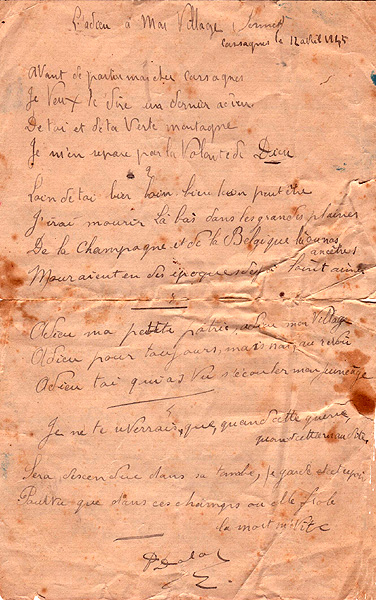 L'adieu a Mon Village,
Carsagnes le 12 avril 1945
Avant de partir mai cher carsagnes
Je Veux te dire un dernier adieu
De tai et de ta Verte montagne
Je m'en repare par la Volonte de Dieu
Loin de tai bien loin bien loin peut être
J'irai mourir Là bas dans les grandes plaines
De la champagne et de la Belgique là ou nos
ancêtres
Mouraient en des époques déjà lointaines
Adieu ma petite patrie, adieu mon Village
Adieu pour toujours, mais nais, au revoir
Adieu tai qui as Vu s'écouler mon juneage
Je ne te reverrai, que, quand cette guerre,
quand cette maudite,
Sera descendue dans sa tombe, je garde
que dans ces champs ou elle
la mort m'